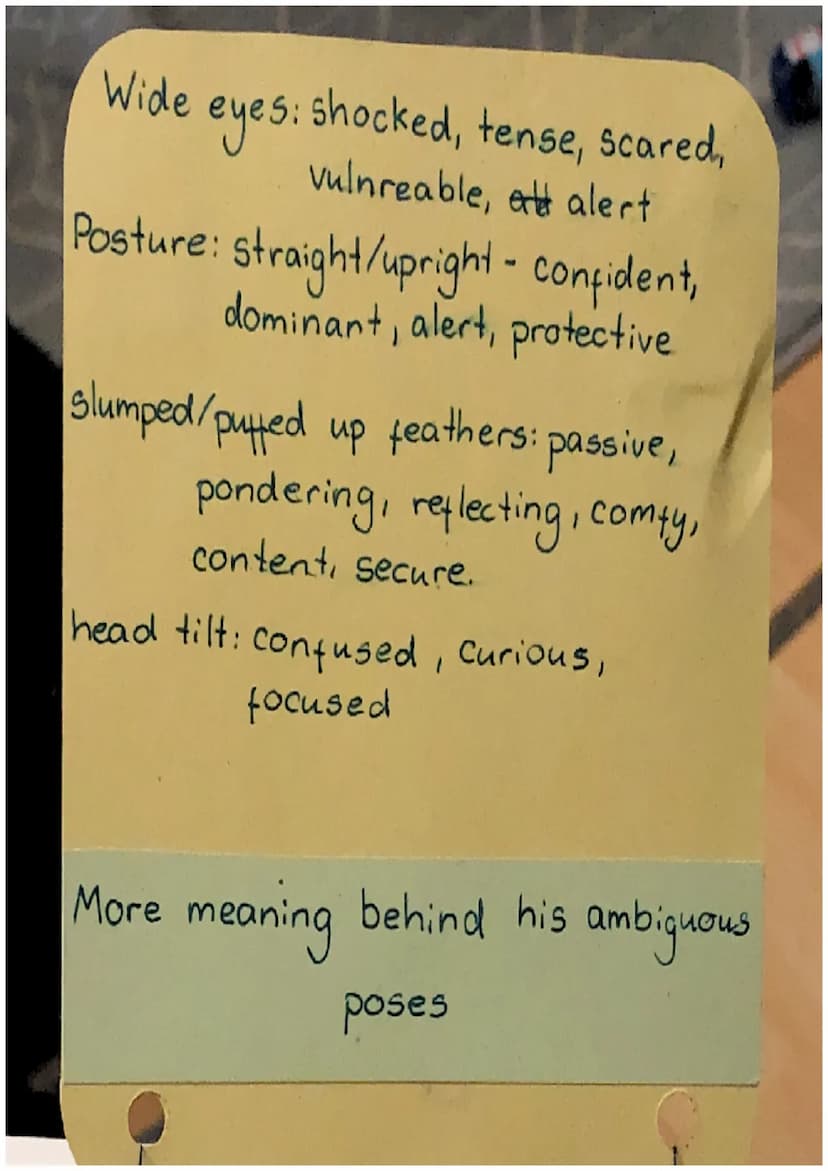 Wide eyes: shocked, tense, scared,
vulnreable, alert
Posture: straight/upright - confident,
dominant, alert, protective
slumped/puffed up feathers: passive,
pondering, reflecting, comfy,
content, secure.
head tilt: confused, curious,
focused
More meaning behind his ambiguous
poses